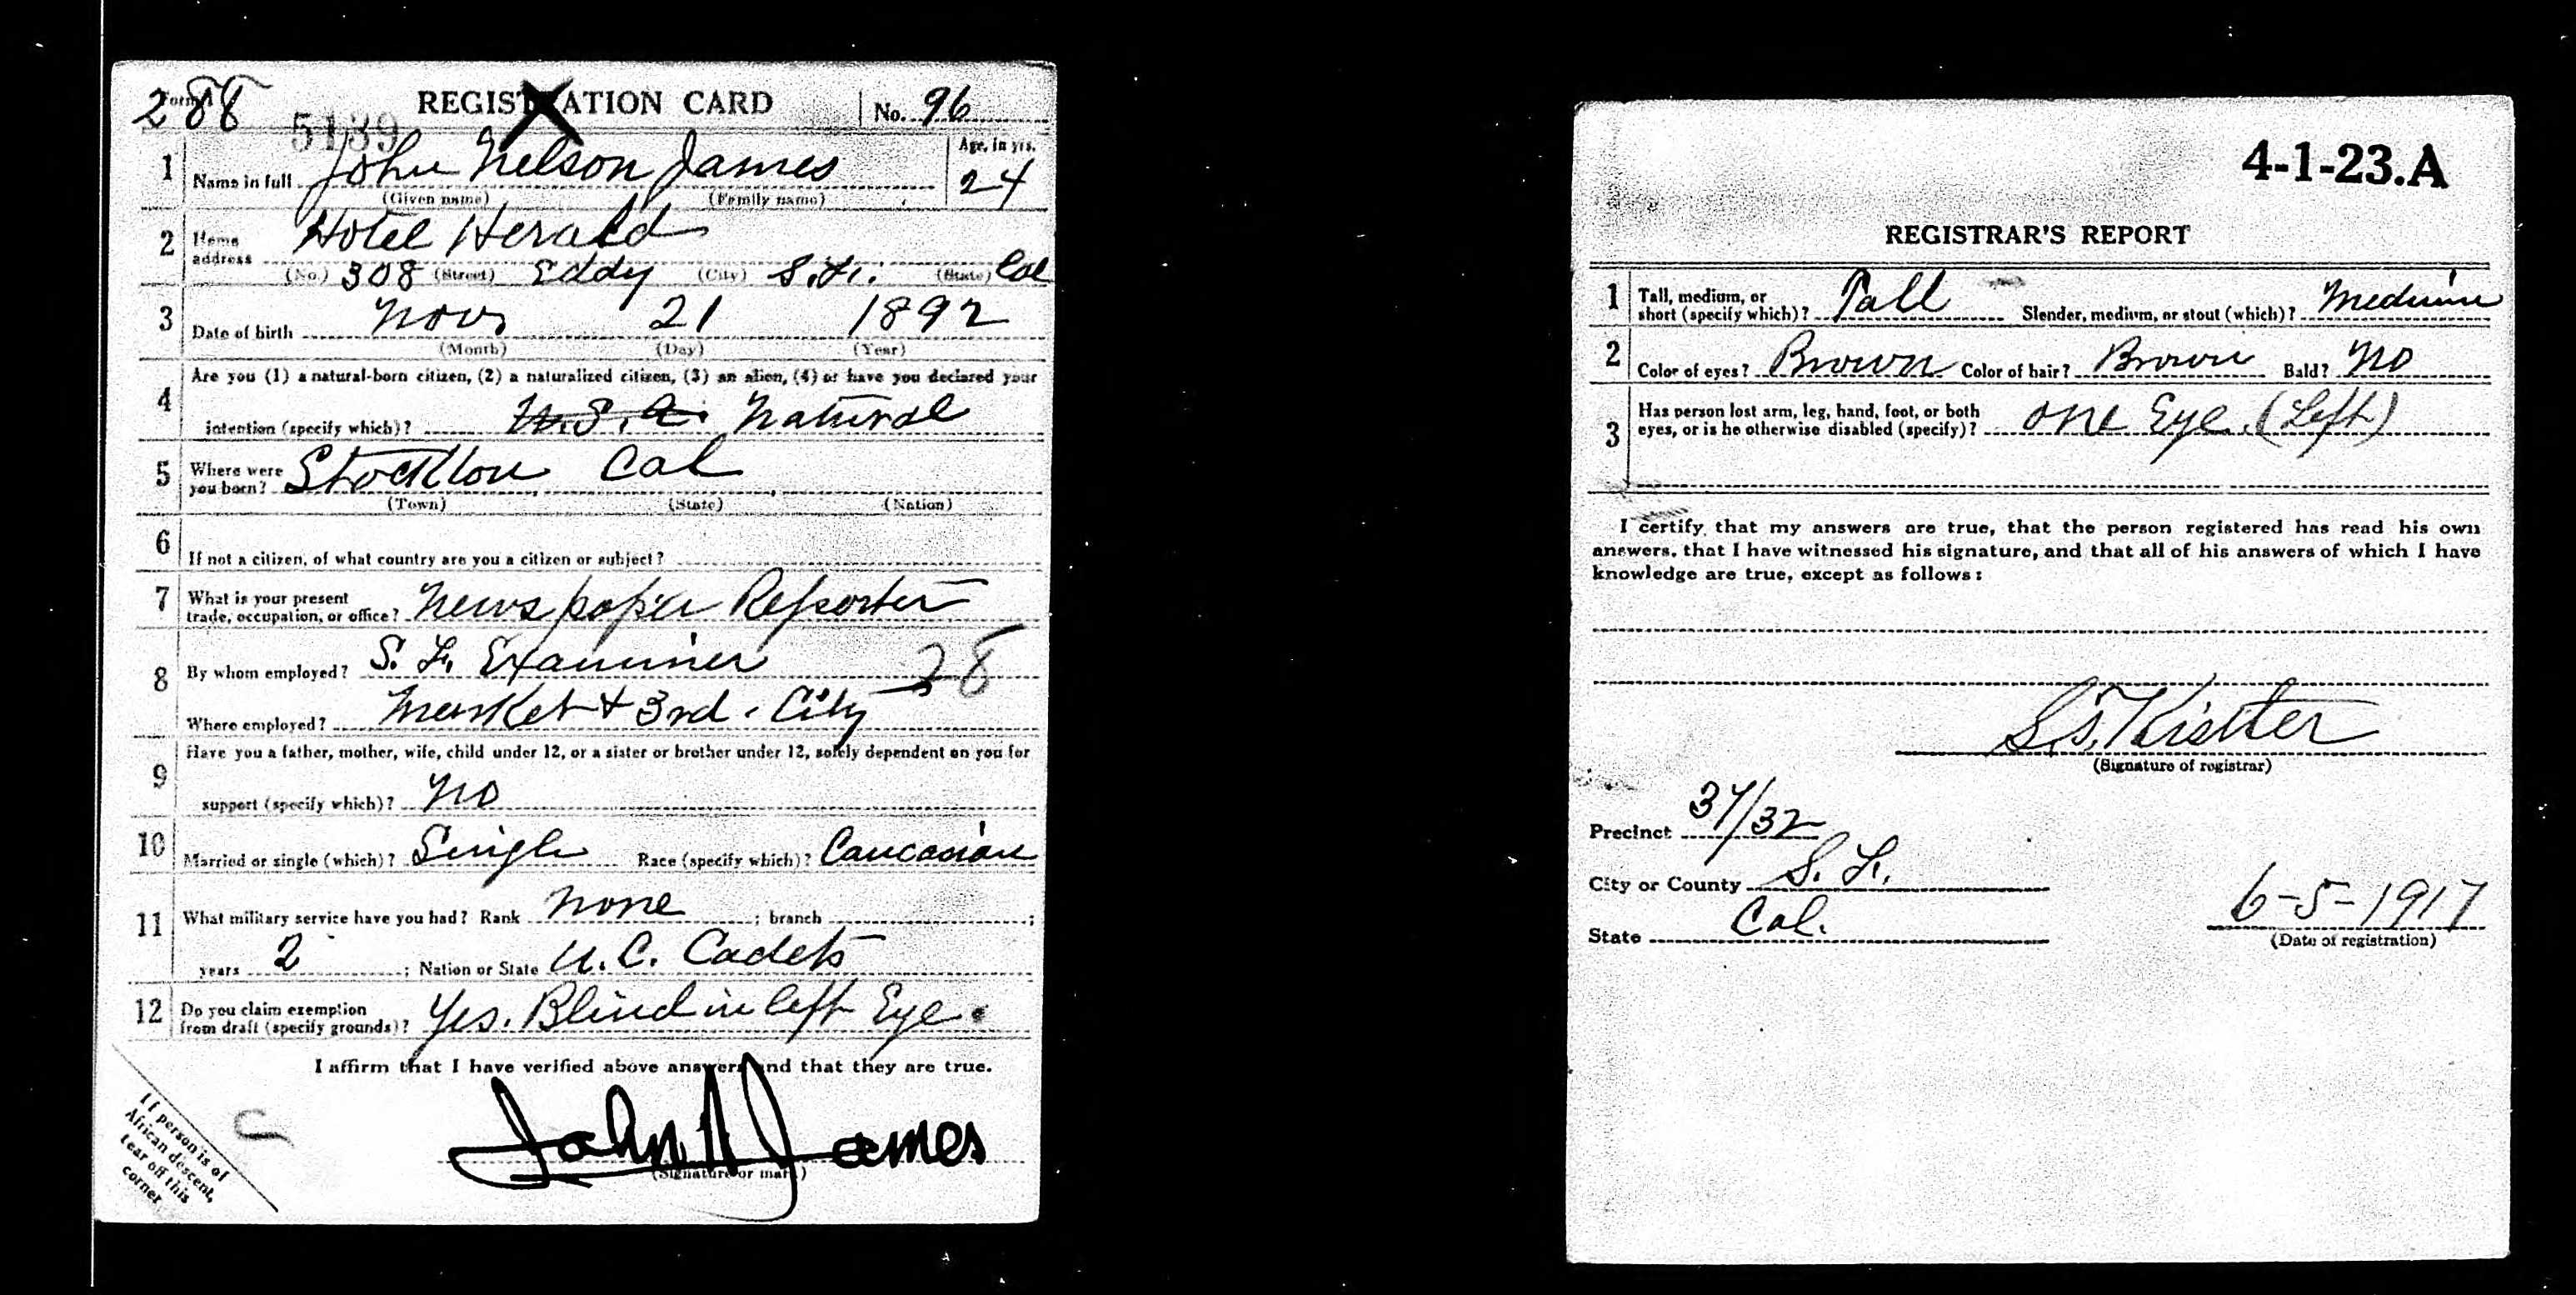 Form 1 288 REGISTRATION CARD No. 96
5139
1 Name in full John Nelson James Age, in yrs. 24
(Given name) (Family name)
2 Home address Hotel Herald
(No.) 308 (Street) Eddy (City) S.F. (State) Cal
3 Date of birth Nov 21 1892
(Month) (Day) (Year)
4 Are you (1) a natural-born citizen, (2) a naturalized citizen, (3) an alien, (4) or have you declared your
intention (specify which)? U.S.A. Natural
5 Where were you born? Stockton Cal
(Town) (State) (Nation)
6 If not a citizen, of what country are you a citizen or subject?
7 What is your present trade, occupation, or office? Newspaper Reporter
8 By whom employed? S.F. Examiner 28
Where employed? Market + 3rd. City
9 Have you a father, mother, wife, child under 12, or a sister or brother under 12, solely dependent on you for
support (specify which)? No
10 Married or single (which)? Single Race (specify which)? Caucasian
11 What military service have you had? Rank None ; branch ;
years 2 ; Nation or State U.C. Cadets
12 Do you claim exemption from draft (specify grounds)? Yes. Blind in left Eye.
I affirm that I have verified above answers and that they are true.
John N James
(Signature or mark)
If person is of
African descent,
tear off this
corner
4-1-23.A
REGISTRAR'S REPORT
1 Tall, medium, or short (specify which)? Tall Slender, medium, or stout (which)? Medium
2 Color of eyes? Brown Color of hair? Brown Bald? No
3 Has person lost arm, leg, hand, foot, or both eyes, or is he otherwise disabled (specify)? One Eye. (Left)
I certify that my answers are true, that the person registered has read his own
answers, that I have witnessed his signature, and that all of his answers of which I have
knowledge are true, except as follows:
(Signature of registrar)
Precinct 37/32
City or County S.F.
State Cal. 6-5-1917
(Date of registration)